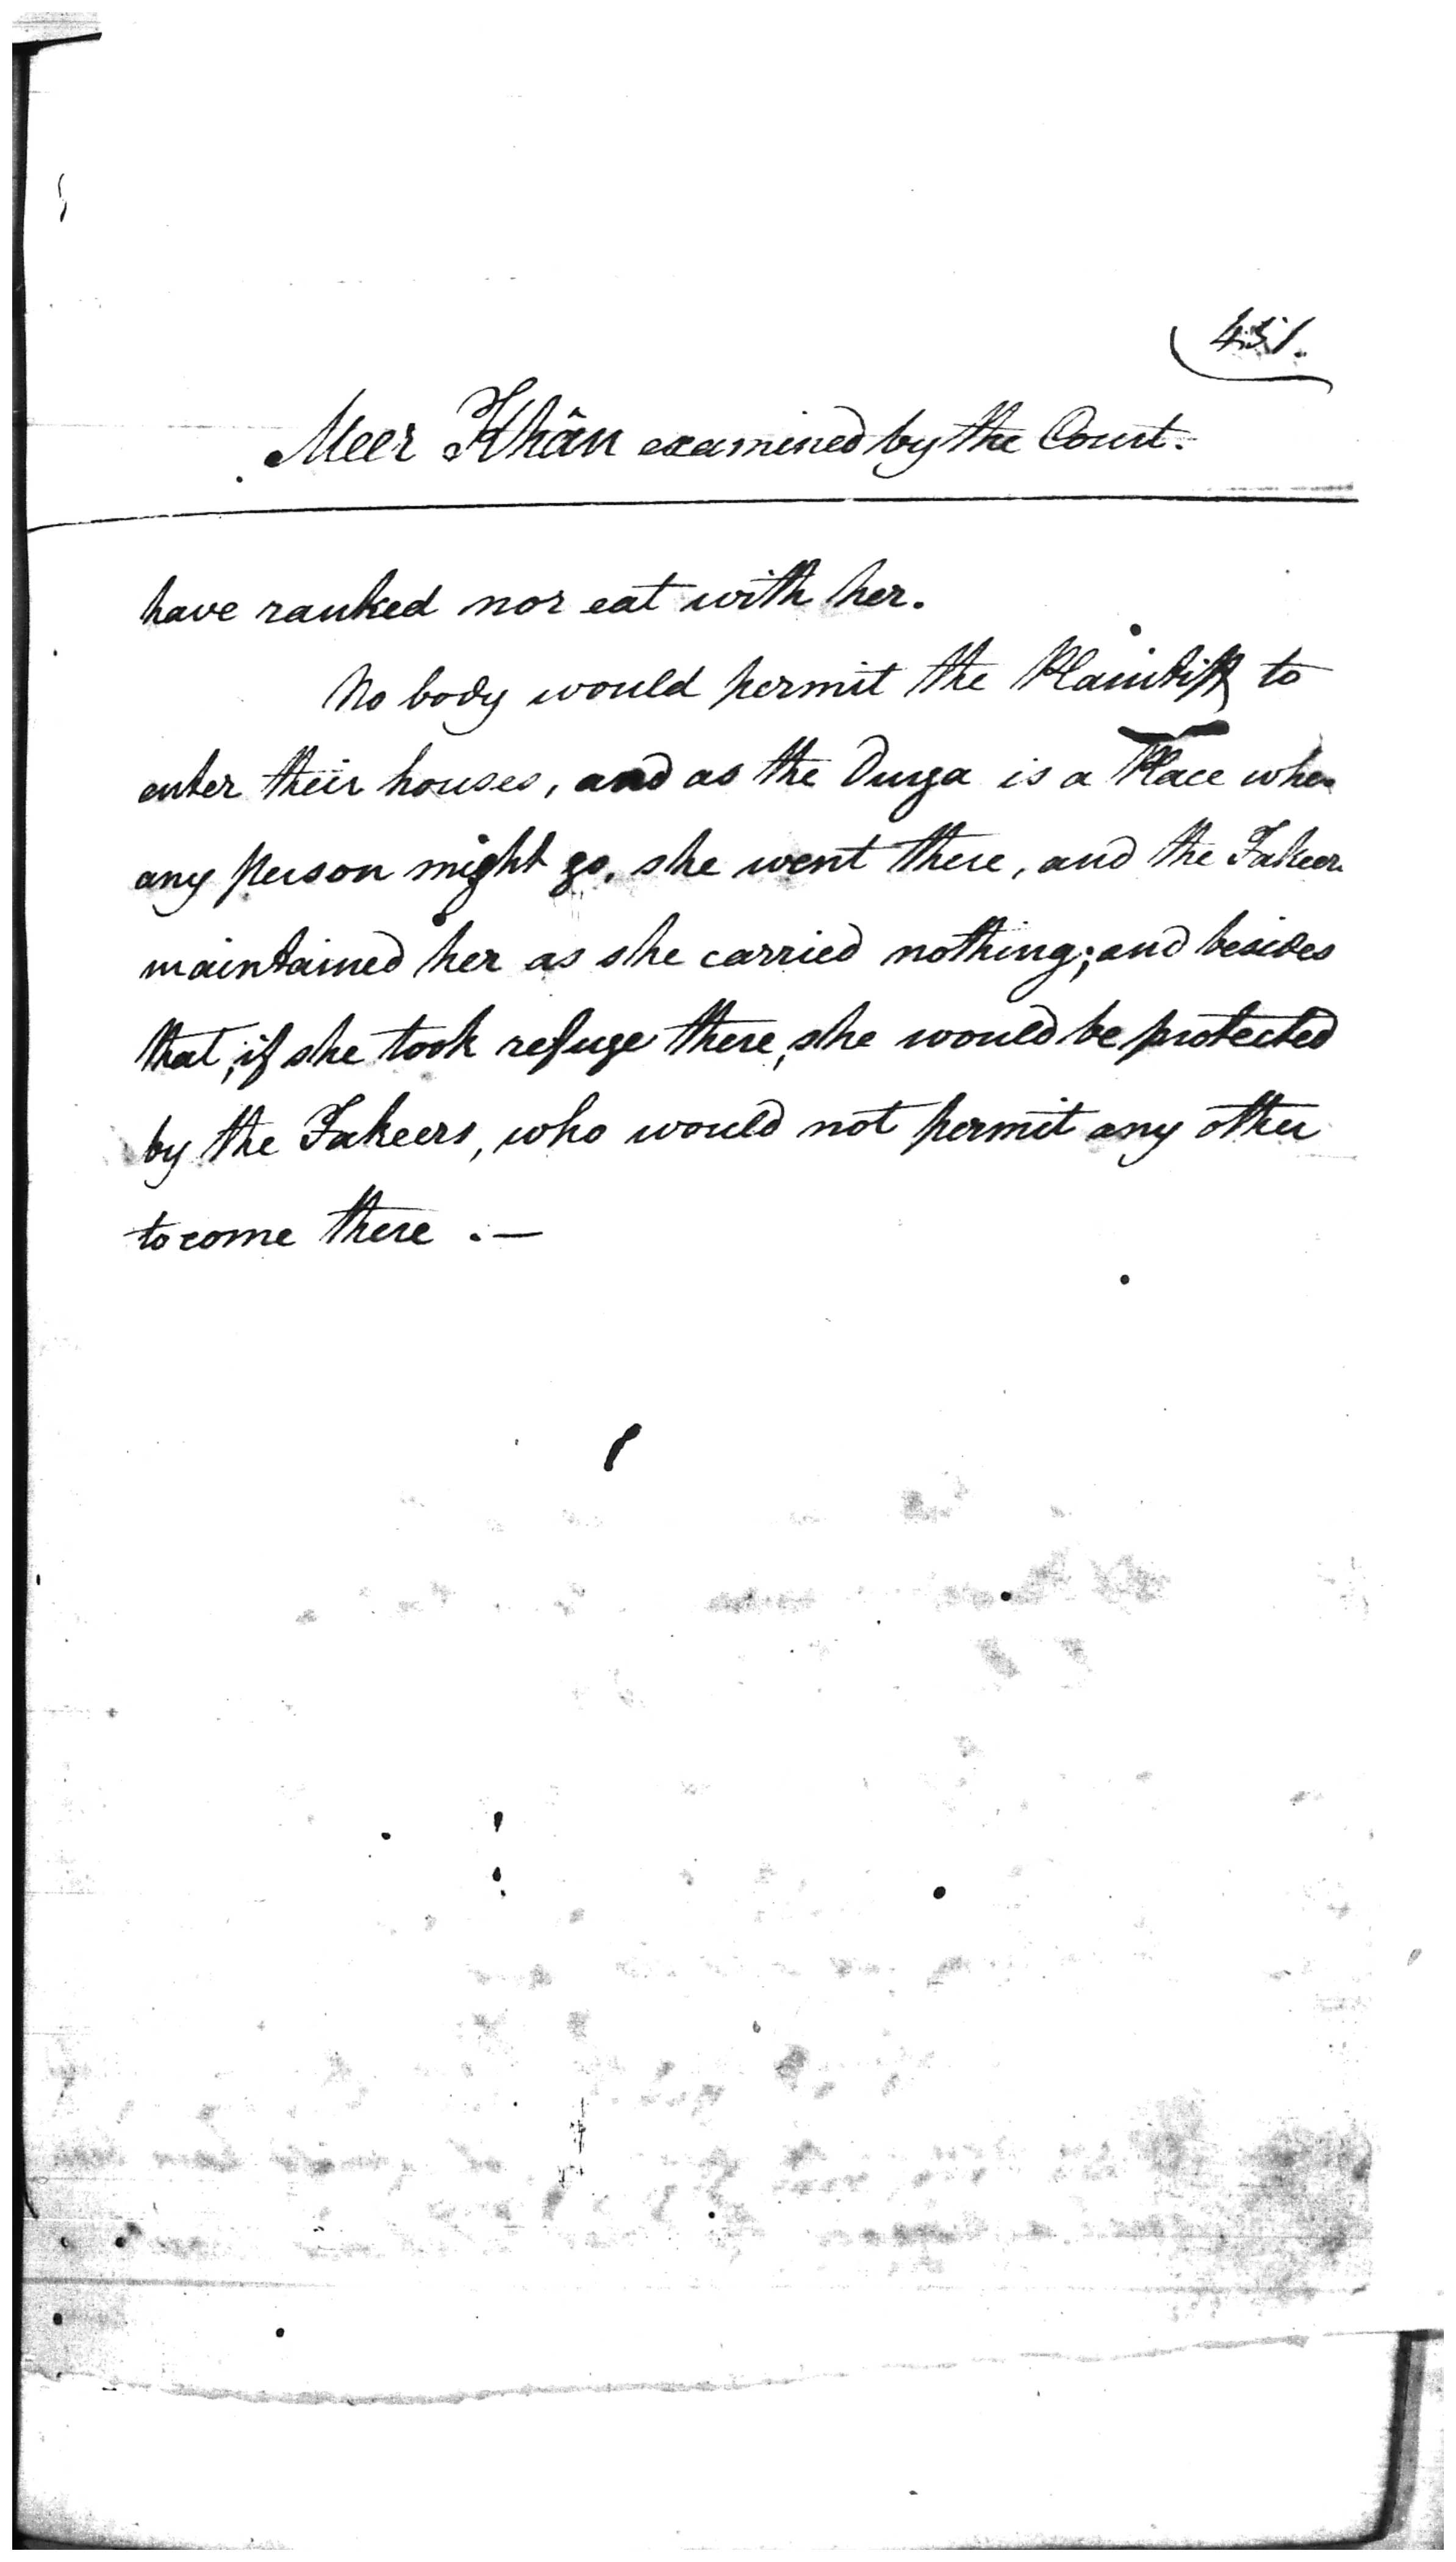 451.
Meer Khân examined by the Court.
have ranked nor eat with her.
No body would permit the Plaintiff to
enter their houses, and as the Durga is a Place where
any person might go, she went there, and the Fakeers
maintained her as she carried nothing; and besides
that, if she took refuge there, she would be protected
by the Fakeers, who would not permit any other
to come there . —